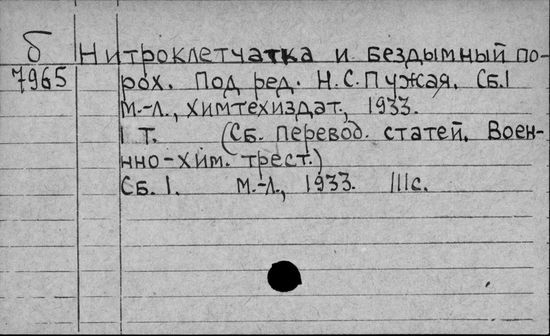 б Нитроклетчатка и бездымный по-
7965 рох. Под ред. Н.С.Пужая. Сб.1
М.-Л., Химтехиздат., 1933.
1 т. (Сб. перевод. статей. Воен-
нно-хим. трест.)
Сб. 1. М.-Л., 1933. 111с.